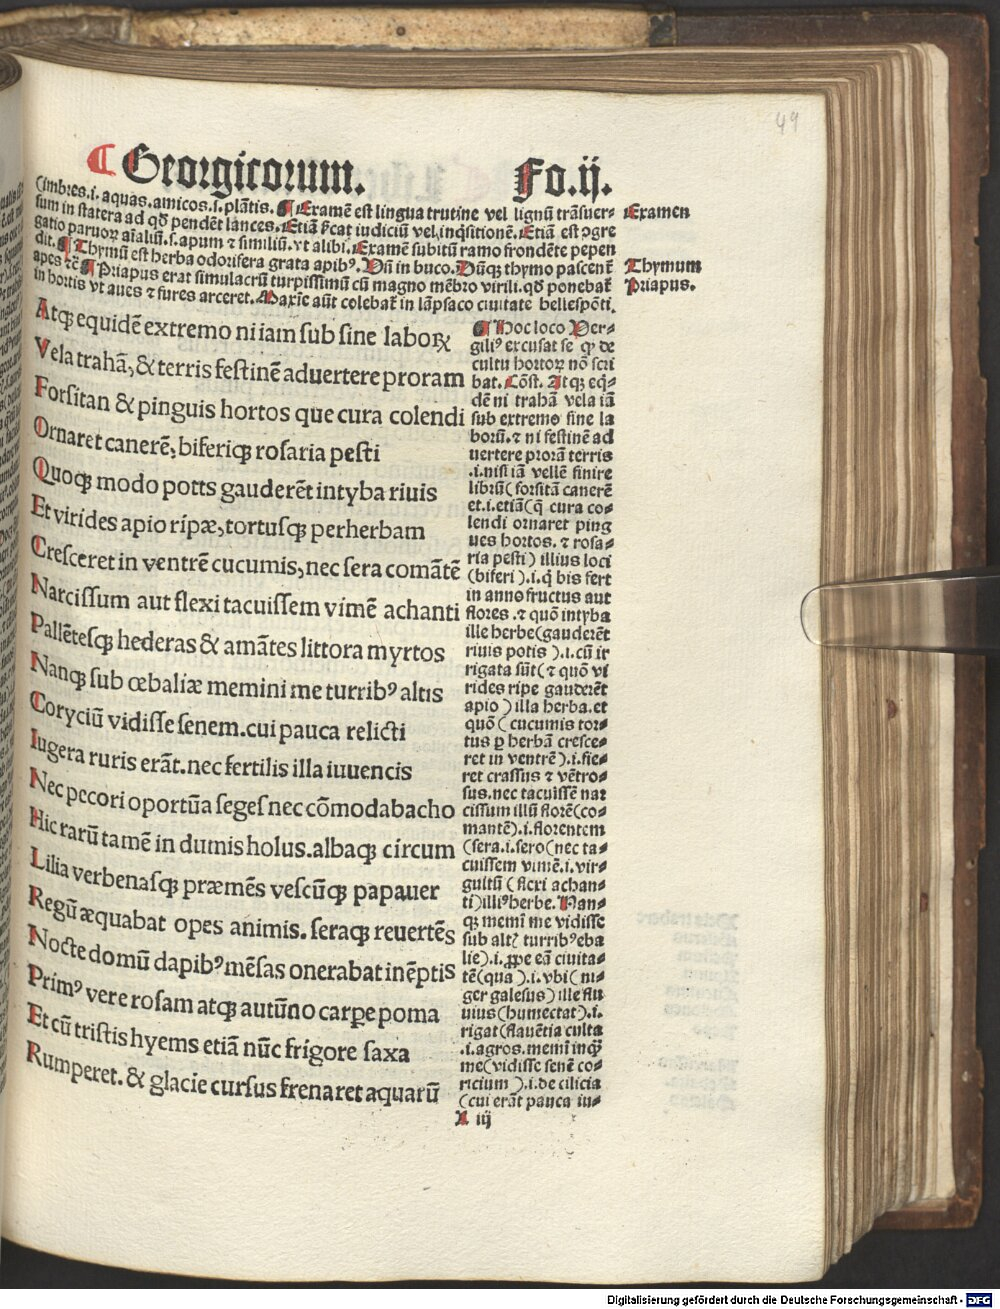 49
Georgicorum. Fo.ij.
(imbres.i. aquas.amicos.s.plātis. ¶ Examē est lingua trutine vel lignū trāsuer- Examen
sum in statera ad qđ pendēt lances. Etiā
gatio paruoꝝ aīaliū.s.apum ⁊ similiū.vt alibi. Examē subitū ramo frondēte pepen
dit. ¶ Thymū est herba odorifera grata apibꝰ. Vñ in buco. Dūqꝫ thymo pascenť Thymum
apes ⁊č ¶ Priapus erat simulacrū turpissimū cū magno mēbro virili. qđ ponebať Priapus.
in hortis vt aues ⁊ fures arceret. Maxīe aūt colebať in lāpsaco ciuitate bellespōti.
Atqꝫ equidē extremo ni iam sub fine laboꝝ
Vela trahā, & terris festinē aduertere proram
Forsitan & pinguis hortos que cura colendi
Ornaret canerē, biferiqꝫ rosaria pesti
Quoqꝫ modo potts gauderēt intyba riuis
Et virides apio ripæ, tortusqꝫ perherbam
Cresceret in ventrē cucumis, nec sera comātē
Narcissum aut flexi tacuissem vimē achanti
Pallētesqꝫ hederas & amātes littora myrtos
Nanqꝫ sub œbaliæ memini me turribꝰ altis
Coryciū vidisse senem.cui pauca relicti
Iugera ruris erāt.nec fertilis illa iuuencis
Nec pecori oportūa seges nec cōmoda bacho
Hic rarū tamē in dumis holus.albaqꝫ circum
Lilia verbenasqꝫ præmēs vescūqꝫ papauer
Regū æquabat opes animis. seraqꝫ reuertēs
Nocte domū dapibꝰ mēsas onerabat inēptis
Primꝰ vere rosam atqꝫ autūno carpe poma
Et cū tristis hyems etiā nūc frigore saxa
Rumperet. & glacie cursus frenaret aquarū
¶ Hoc loco Ver-
giliꝰ excusat se qꝫ de
cultu hortoꝝ nō scri
bat. Cōst. Atqꝫ eq̄-
dē ni trahā vela iā
sub extremo fine la
borū.⁊ ni festinē ad
uertere prorā terris
.i.nisi iā vellē finire
librū(forsitā canerē
et.i.etiā(q̄ cura co-
lendi ornaret ping
ues hortos. ⁊ rosa-
ria pesti) illius loci
(biferi).i.q̄ bis fert
in anno fructus aut
flores .⁊ quō intyba
ille herbe(gauderēt
riuis potis ).i.cū ir
rigata sūt(⁊ quō vi
rides ripe gauderēt
apio ) illa herba.et
quō ( cucumis tor-
tus ꝑ herbā cresce-
ret in ventrē ).i.fie-
ret crassus ⁊ vētro-
sus.nec tacuissē nar
cissum illū florē(co-
mantē).i.florentem
(sera.i.sero(nec ta-
cuissem vimē.i.vir-
gultū ( flexi achan-
ti)illiꝰ herbe. Nan-
qꝫ memī me vidisse
sub altꝭ turribꝰ eba
lie).i. ꝓpe eā ciuita-
tē(qua ).i.vbi( ni-
ger galesus) ille flu
uius(humectat).i.
rigat(flauētia culta
.i.agros. memī inqꝫ
me(vidisse senē co-
ricium ).i.de cilicia
(cui erāt pauca iu-
A iij
Digitalisierung gefördert durch die Deutsche Forschungsgemeinschaft - DFG